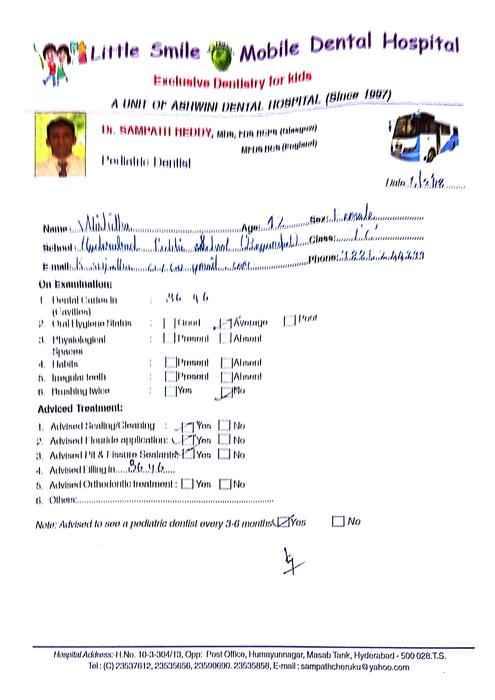 Little Smile Mobile Dental Hospital
Exclusive Dentistry for kids
A UNIT OF ASHWINI DENTAL HOSPITAL (Since 1997)
Dr. SAMPATH REDDY, MDS,
Pediatric Dentist
Date
Name: Age: 12 Sex: Female
School: Hyderabad Public School Class:
E-mail: Phone:
On Examination:
1. Dental Caries in : 36 46
(Cavities)
2. Oral Hygiene Status : Good Average Poor
3. Physiological : Present Absent
Spaces
4. Habits : Present Absent
5. Irregular teeth : Present Absent
6. Brushing twice : Yes No
Adviced Treatment:
1. Advised Scaling/Cleaning : Yes No
2. Advised Flouride application: Yes No
3. Advised Pit & Fissure Sealants: Yes No
4. Advised Filling in....36 46....
5. Advised Orthodontic treatment : Yes No
6. Others:
Note: Advised to see a pediatric dentist every 3-6 months. Yes No
Hospital Address: H.No. 10-3-304/13, Opp: Post Office, Humayunnagar, Masab Tank, Hyderabad - 500 028.T.S.
Tel : (C) 23537612, 23535656, 23590690. 23535858, E-mail : sampathcheruku@yahoo.com